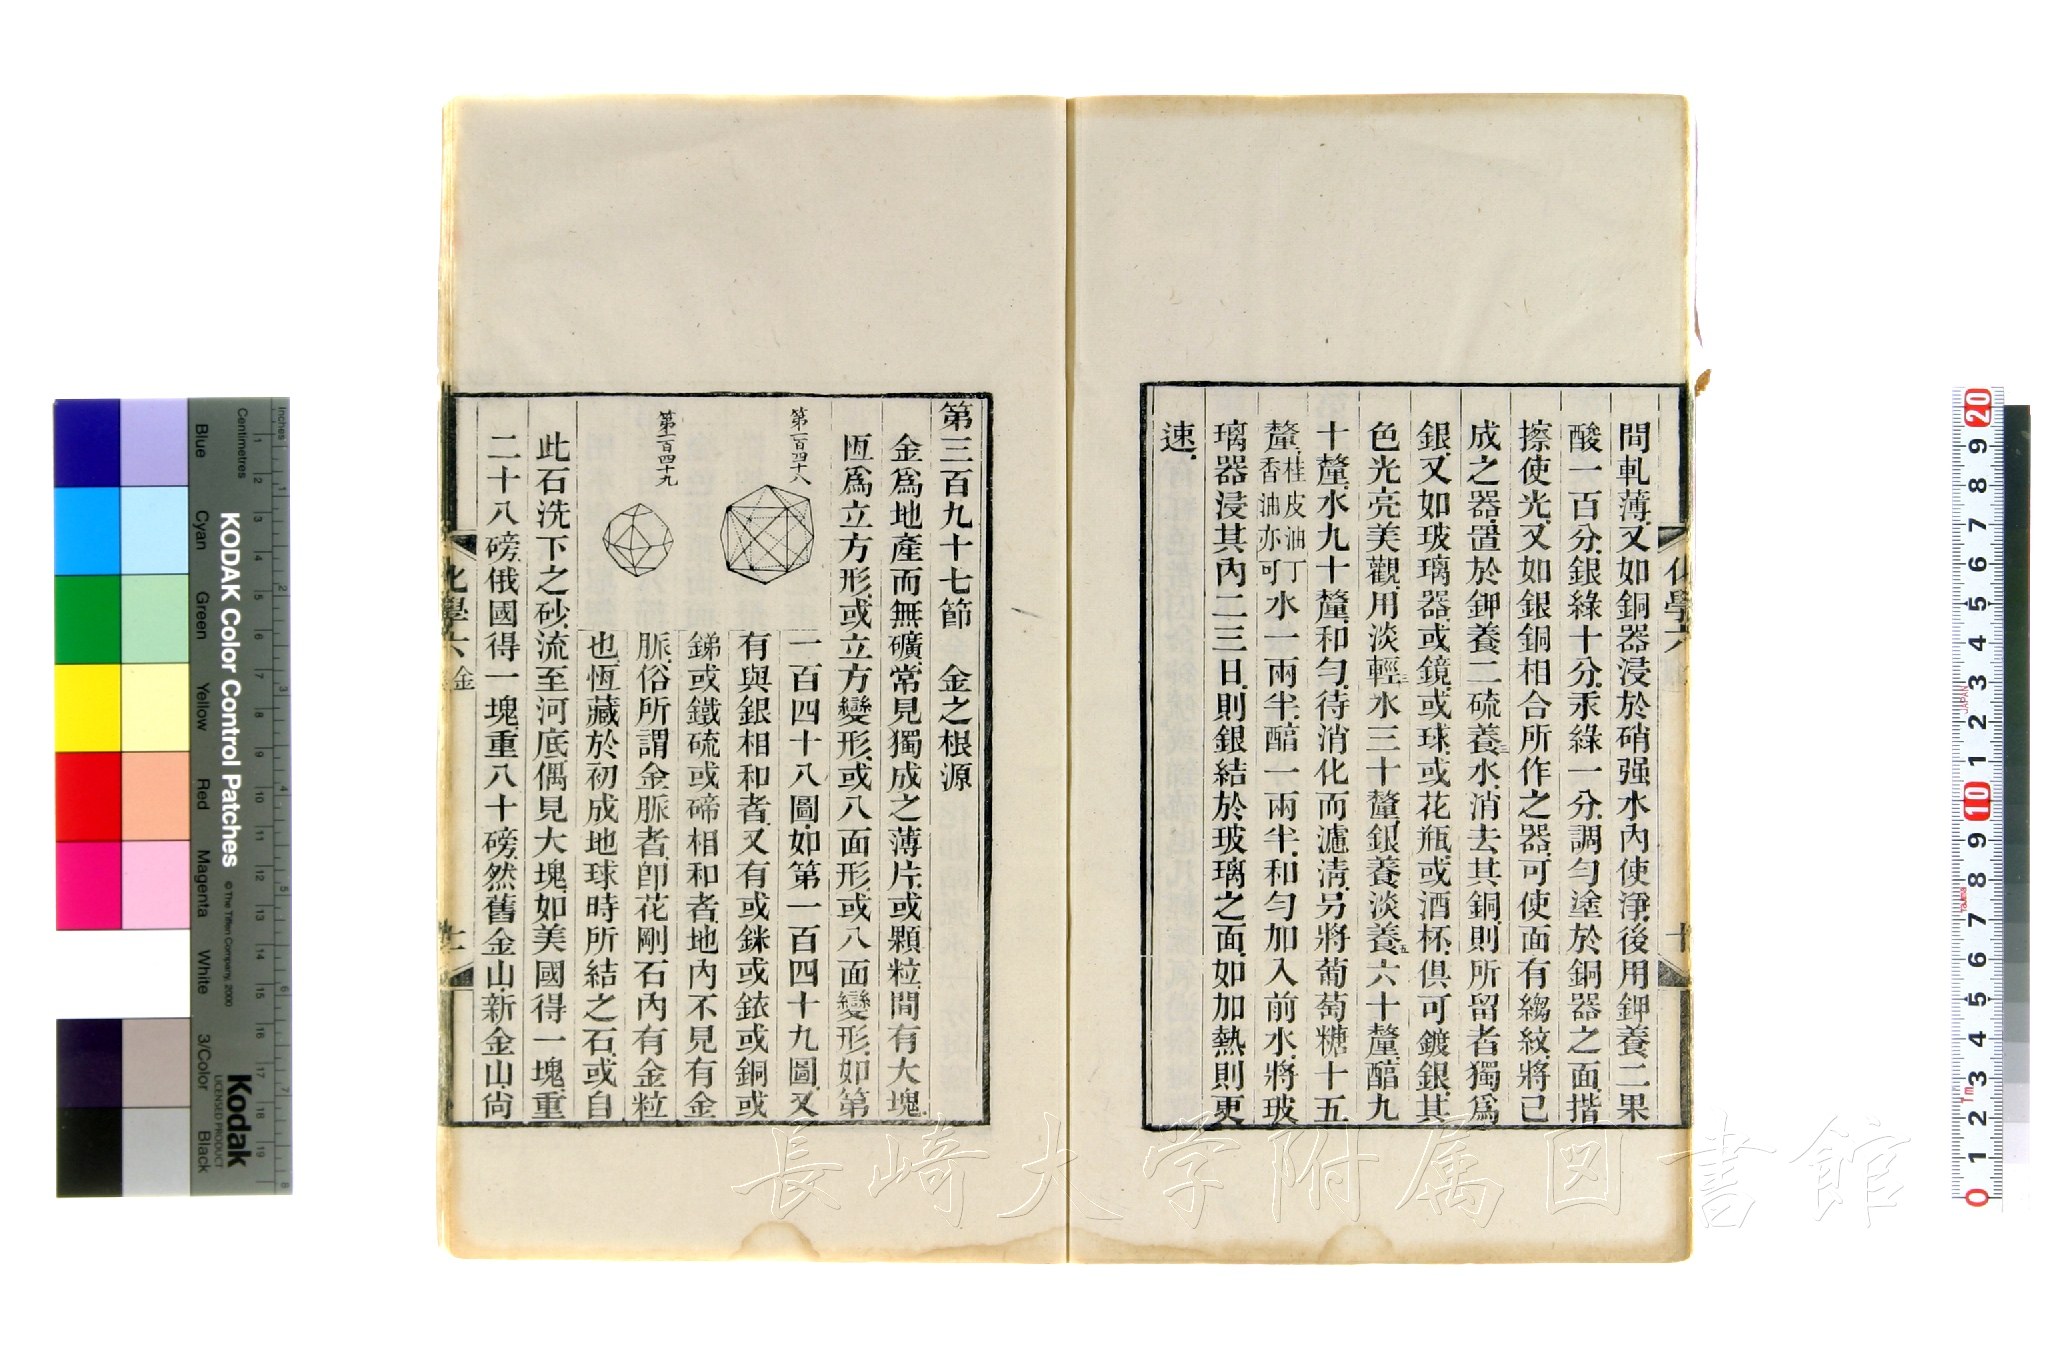 間軋薄.又如銅器浸於硝强水內使淨.後用鉀養二果
酸一百分.銀綠十分.汞綠一分.調勻塗於銅器之面.揩
擦使光.又如銀銅相合所作之器.可使面有縐紋.將已
成之器.置於鉀養二硫養三水.消去其銅.則所留者獨爲
銀.又如玻璃器.或鏡.或球.或花瓶.或酒杯.俱可鍍銀.其
色光亮美觀.用淡輕三水三十釐.銀養淡養五六十釐.醕九
十釐.水九十釐.和勻.待消化而濾淸.另將葡萄糖十五
釐.桂皮油丁香油亦可水一兩半.醕一兩半.和勻加入前水.將玻
璃器浸其內二三日.則銀結於玻璃之面.如加熱則更
速.
化學六
十
第三百九十七節 金之根源
金爲地產而無礦.常見獨成之薄片.或顆粒.間有大塊.
恆爲立方形.或立方變形.或八面形.或八面變形.如第
第一百四十八
一百四十八圖.如第一百四十九圖.又
有與銀相和者.又有或銤或銥或銅或
銻或鐵硫或碲相和者.地內不見有金
第一百四十九
脈.俗所謂金脈者.卽花剛石內有金粒
也.恆藏於初成地球時所結之石.或自
此石洗下之砂.流至河底.偶見大塊.如美國得一塊.重
二十八磅.俄國得一塊重八十磅.然舊金山.新金山.尙
化學六 金
十一
KODAK Color Control Patches
© The Tiffen Company, 2000
Kodak
LICENSED PRODUCT
Inches
Centimetres
Blue
Cyan
Green
Yellow
Red
Magenta
White
3/Color
Black
長崎大学附属図書館
JAPAN